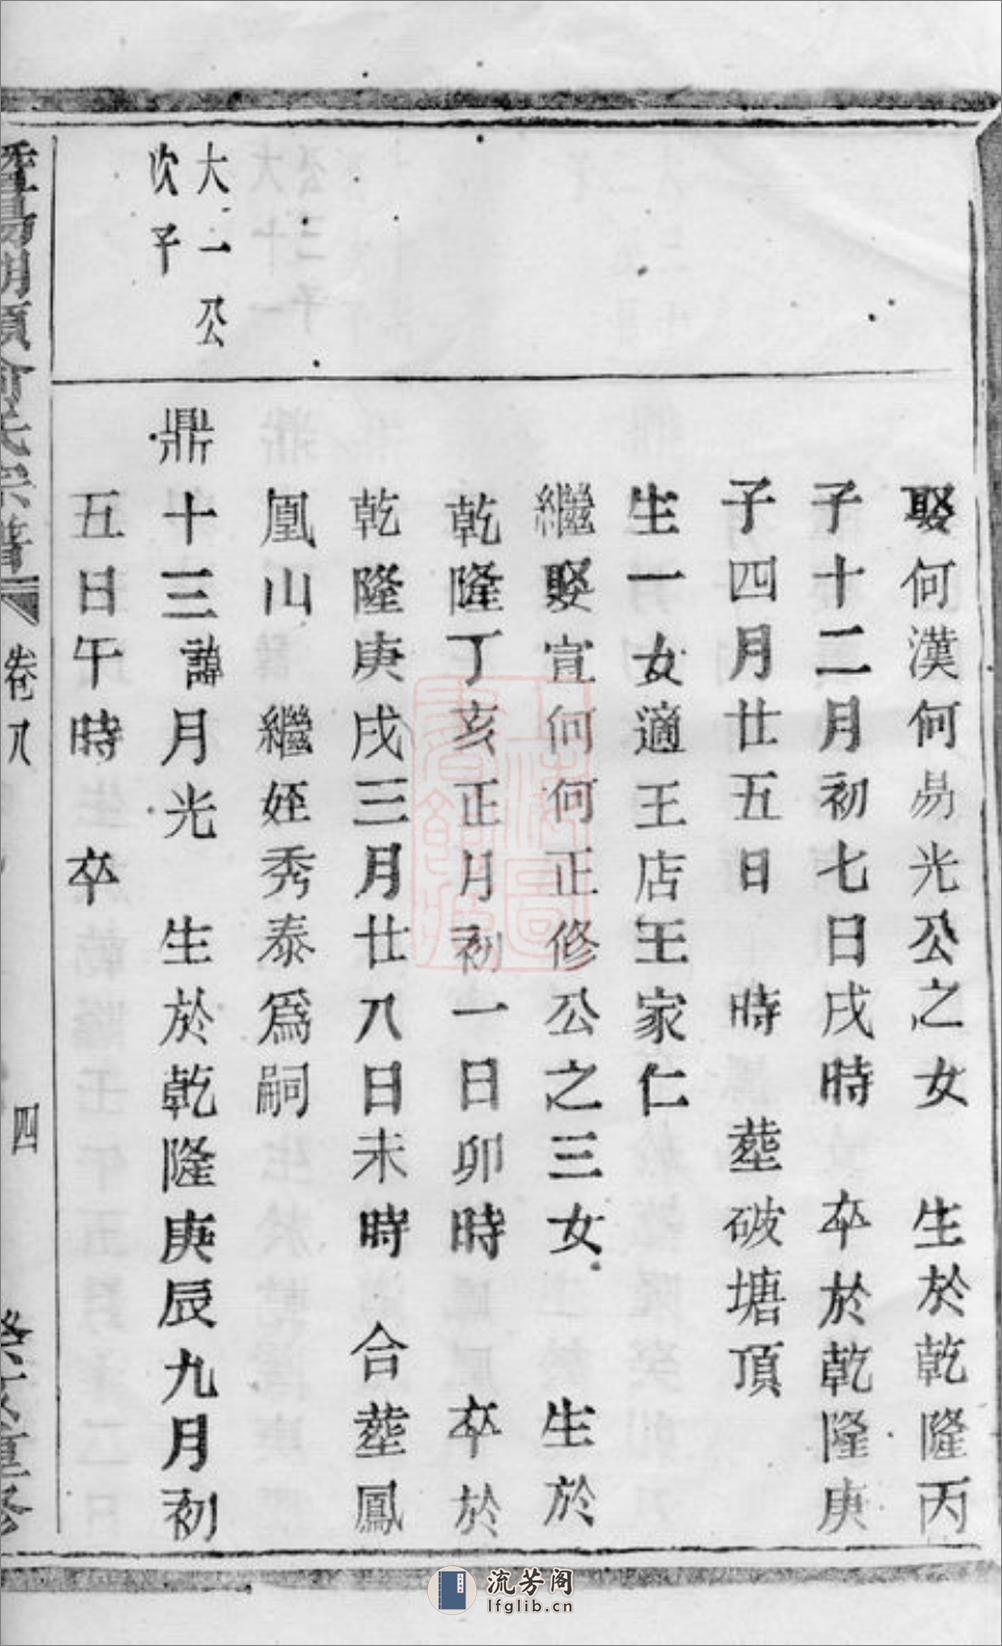 娶何漢何易光公之女　生於乾隆丙
子十二月初七日戌時　卒於乾隆庚
子四月廿五日　時　塟破塘頂
生一女適王店王家仁
繼娶宣何何正修公之三女　生於
乾隆丁亥正月初一日卯時　卒於
乾隆庚戌三月廿八日未時　合塟鳳
凰山　繼姪秀泰爲嗣
大一公
次子
鼎十三諱月光　生於乾隆庚辰九月初
五日午時　卒
卷八
四
流芳阁
lfglib.cn